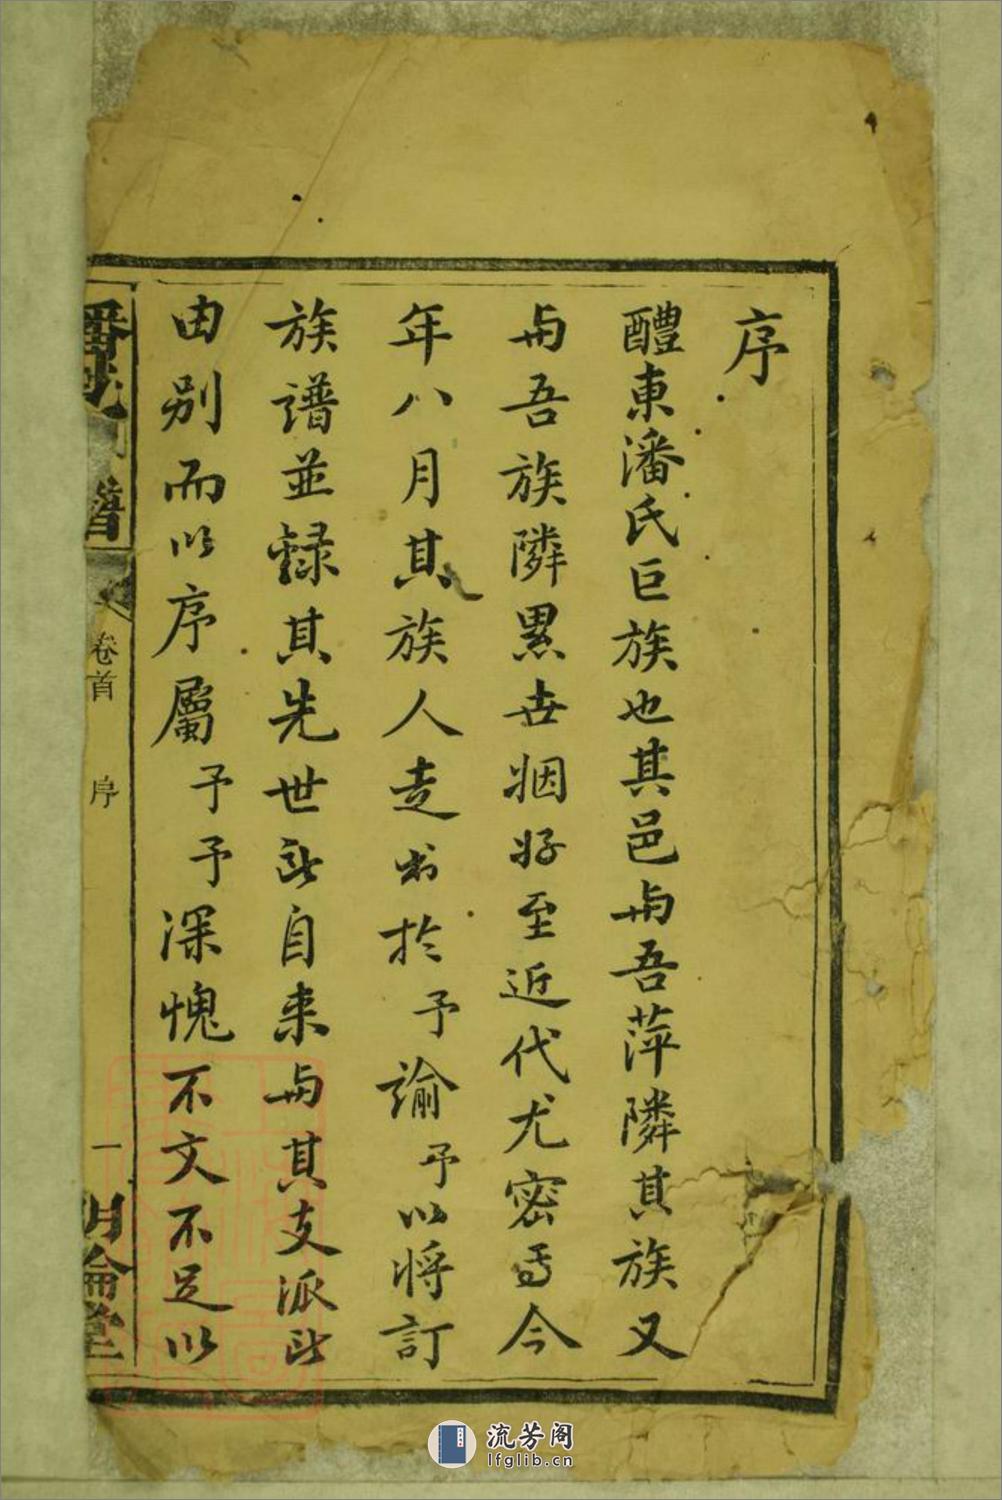 序
醴東潘氏巨族也其邑與吾萍隣其族又
與吾族隣累世姻好至近代尤密焉今
年八月其族人走书於予諭予以將訂
族譜並録其先世所自来與其支派所
由别而以序屬予予深愧不文不足以
潘氏 譜
卷首
序
一
明倫堂
流芳阁
lfglib.cn